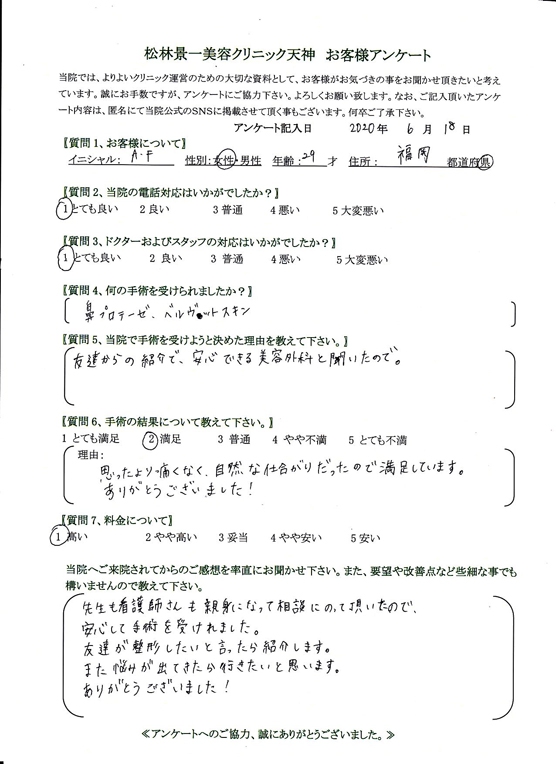 松林景一美容クリニック天神　お客様アンケート
当院では、よりよいクリニック運営のための大切な資料として、お客様がお気づきの事をお聞かせ頂きたいと考え
ています。誠にお手数ですが、アンケートにご協力下さい。よろしくお願い致します。なお、ご記入頂いたアンケ
ート内容は、匿名にて当院公式のSNSに掲載させて頂く事もございます。何卒ご了承下さい。
アンケート記入日　2020年　6月　18日
〖質問1、お客様について〗
イニシャル： A・F　性別：女性・男性　年齢：29才　住所：福岡　都道府県
〖質問2、当院の電話対応はいかがでしたか？〗
1 とても良い　2 良い　3 普通　4 悪い　5 大変悪い
〖質問3、ドクターおよびスタッフの対応はいかがでしたか？〗
1 とても良い　2 良い　3 普通　4 悪い　5 大変悪い
〖質問4、何の手術を受けられましたか？〗
鼻プロテーゼ、ベルヴェットスキン
〖質問5、当院で手術を受けようと決めた理由を教えて下さい。〗
友達からの紹介で、安心できる美容外科と聞いたので。
〖質問6、手術の結果について教えて下さい。〗
1 とても満足　2 満足　3 普通　4 やや不満　5 とても不満
理由：
思ったより痛くなく、自然な仕合がりだったので満足しています。
ありがとうございました！
〖質問7、料金について〗
1 高い　2 やや高い　3 妥当　4 やや安い　5 安い
当院へご来院されてからのご感想を率直にお聞かせ下さい。また、要望や改善点など些細な事でも
構いませんので教えて下さい。
先生も看護師さんも親身になって相談にのって頂いたので、
安心して手術を受けれました。
友達が整形したいと言ったら紹介します。
また悩みが出てきたら行きたいと思います。
ありがとうございました！
≪アンケートへのご協力、誠にありがとうございました。≫